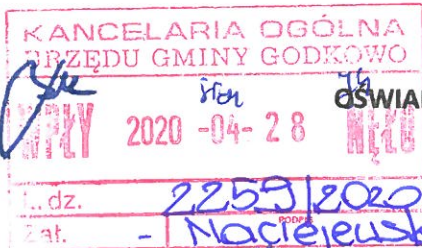 KANCELARIA OGÓLNA
URZĘDU GMINY GODKOWO
OŚWIAD
WPŁY 2020 -04- 28 NĘŁO
L. dz. 2259/2020
Zał. - PODPIS Maciejewsk